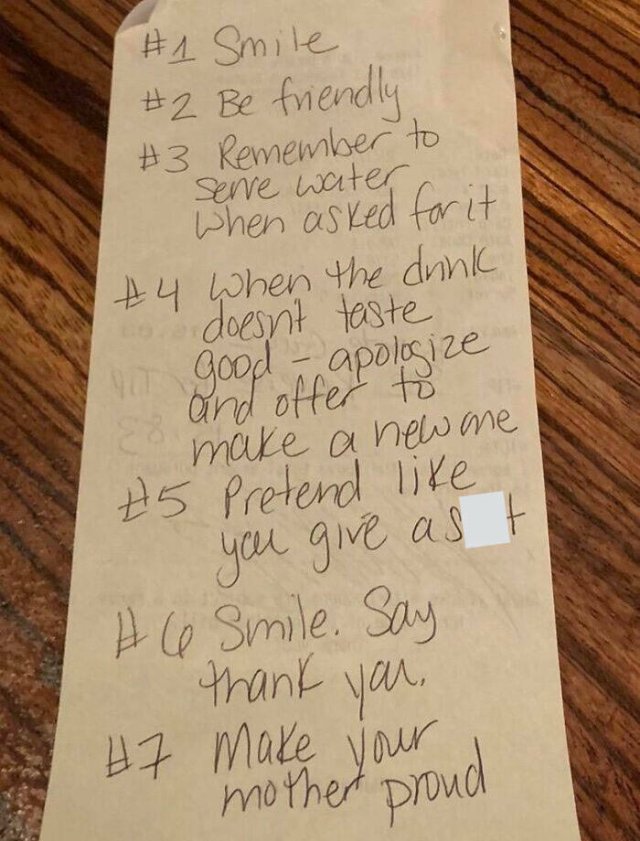 #1 Smile
#2 Be friendly
#3 Remember to
serve water
when asked for it
#4 When the drink
doesnt taste
good - apologize
and offer to
make a new one
#5 Pretend like
you give a s t
#6 Smile. Say
thank you.
#7 Make your
mother proud